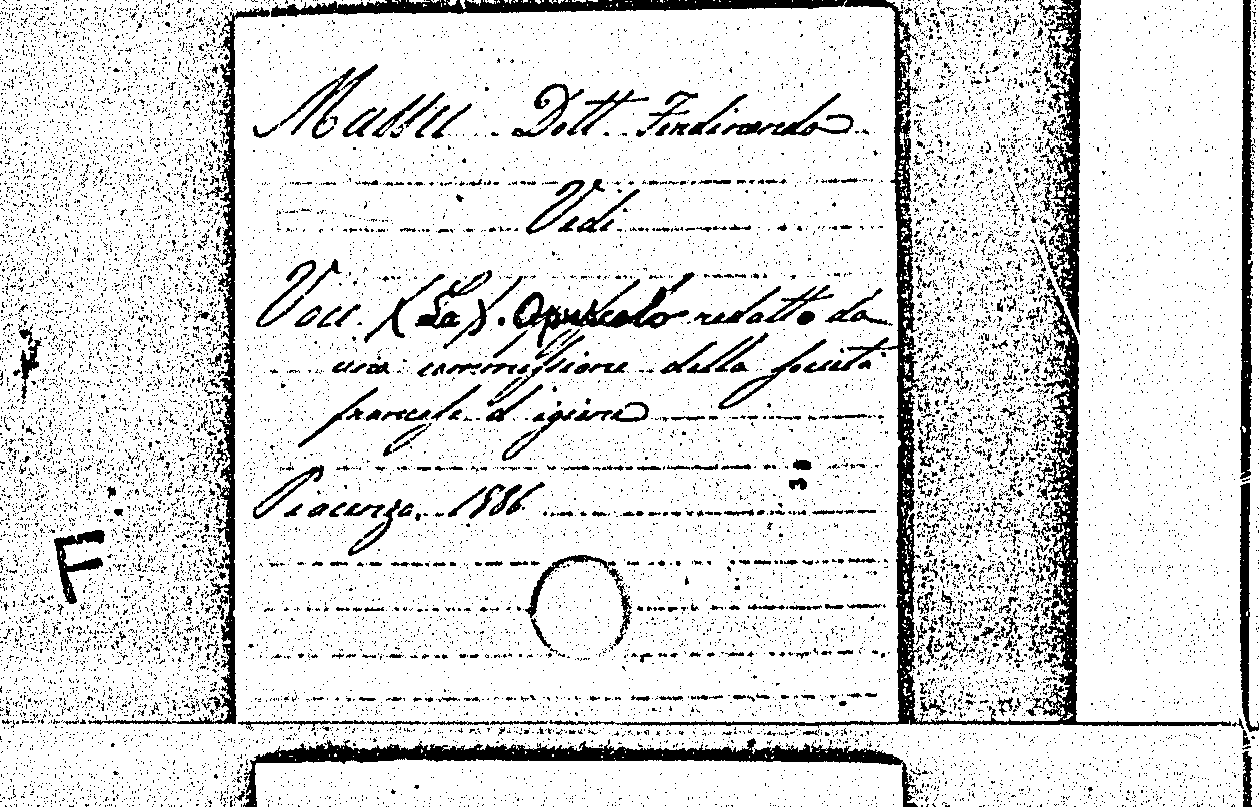 Massei Dott. Ferdinando
Vedi
Voce (La). Opuscolo redatto da
una commissione della società
francese d'igiene
Piacenza, 1886
F